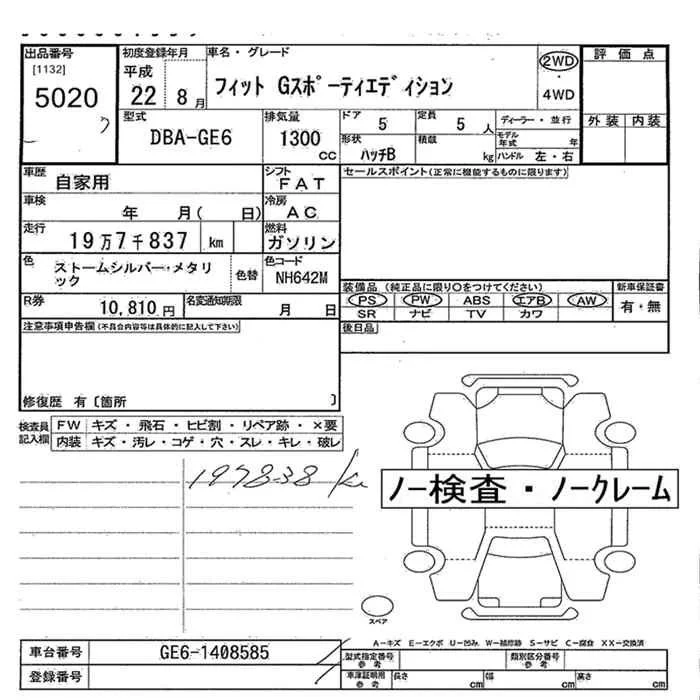 出品番号
[1132]
5020
初度登録年月
平成
22 8月
車名・グレード
フィット Gスポーティエディション
2WD
・
4WD
評価点
外装 内装
型式
DBA-GE6
排気量
1300
cc
ドア 5
定員 5 人
ディーラー・並行
形状
ハッチB
積載 kg
モデル年式 年
ハンドル 左・右
車歴
自家用
シフト
FAT
セールスポイント(正常に機能するものに限ります)
車検
年 月( 日)
冷房
AC
走行
19万7千837 km
燃料
ガソリン
色
ストームシルバー・メタリック
色替
色コード
NH642M
装備品 (純正品に限り○をつけてください)
PS PW ABS エアB AW
SR ナビ TV カワ
新車保証書
有・無
R券
10,810円
名変通知期限
月 日
後日品
注意事項申告欄(不具合内容等は具体的に記入して下さい)
修復歴 有〔箇所 〕
検査員
記入欄
FW キズ・飛石・ヒビ割・リペア跡・×要
内装 キズ・汚レ・コゲ・穴・スレ・キレ・破レ
197838 km
ノー検査・ノークレーム
スペア
A-キズ E-エクボ U-凹み W-補修跡 S-サビ C-腐食 XX-交換済
車台番号 GE6-1408585
登録番号
型式指定番号
参考
類別区分番号
参考
車庫証明用
参考
長さ cm
幅 cm
高さ cm